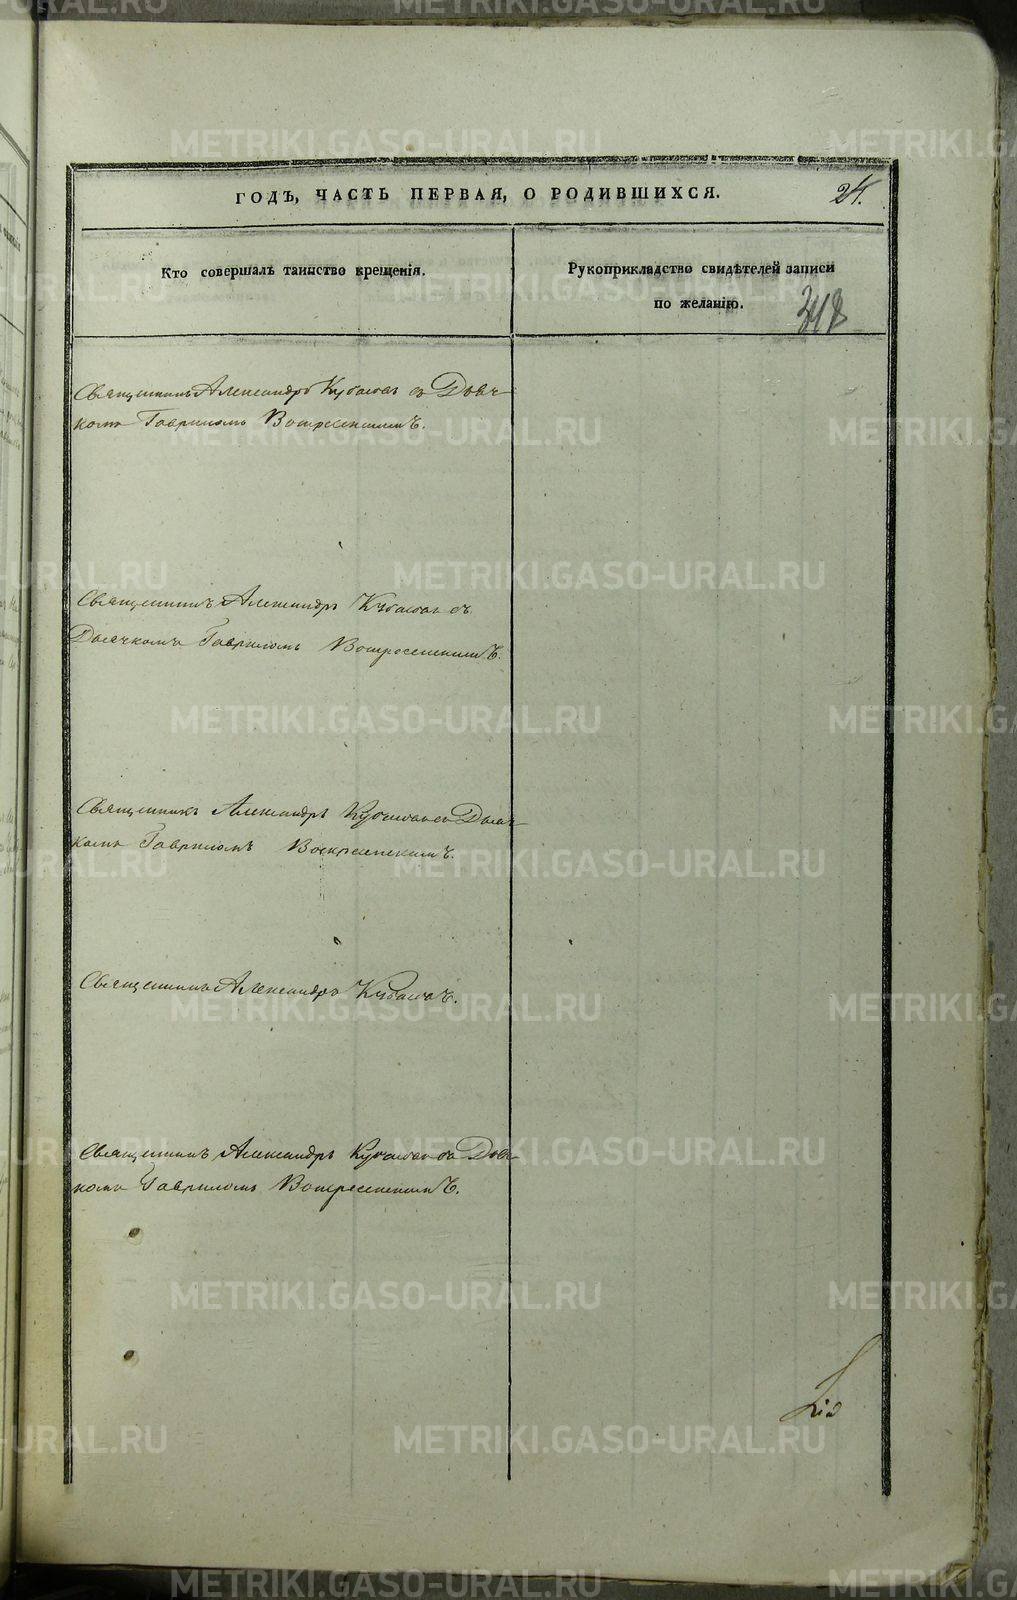 ГОДЪ, ЧАСТЬ ПЕРВАЯ, О РОДИВШИХСЯ.
24.
Кто совершалъ таинство крещенія.
Рукоприкладство свидѣтелей записи
по желанію.
318
Священникъ Александръ Кубасовъ съ Дьяч-
комъ Гавриломъ Воскресенскимъ.
Священникъ Александръ Кубасовъ съ
Дьячкомъ Гавриломъ Воскресенскимъ.
Священникъ Александръ Кубасовъ съ Дьяч-
комъ Гавриломъ Воскресенскимъ.
Священникъ Александръ Кубасовъ.
Священникъ Александръ Кубасовъ съ Дьяч-
комъ Гавриломъ Воскресенскимъ.
METRIKI.GASO-URAL.RU